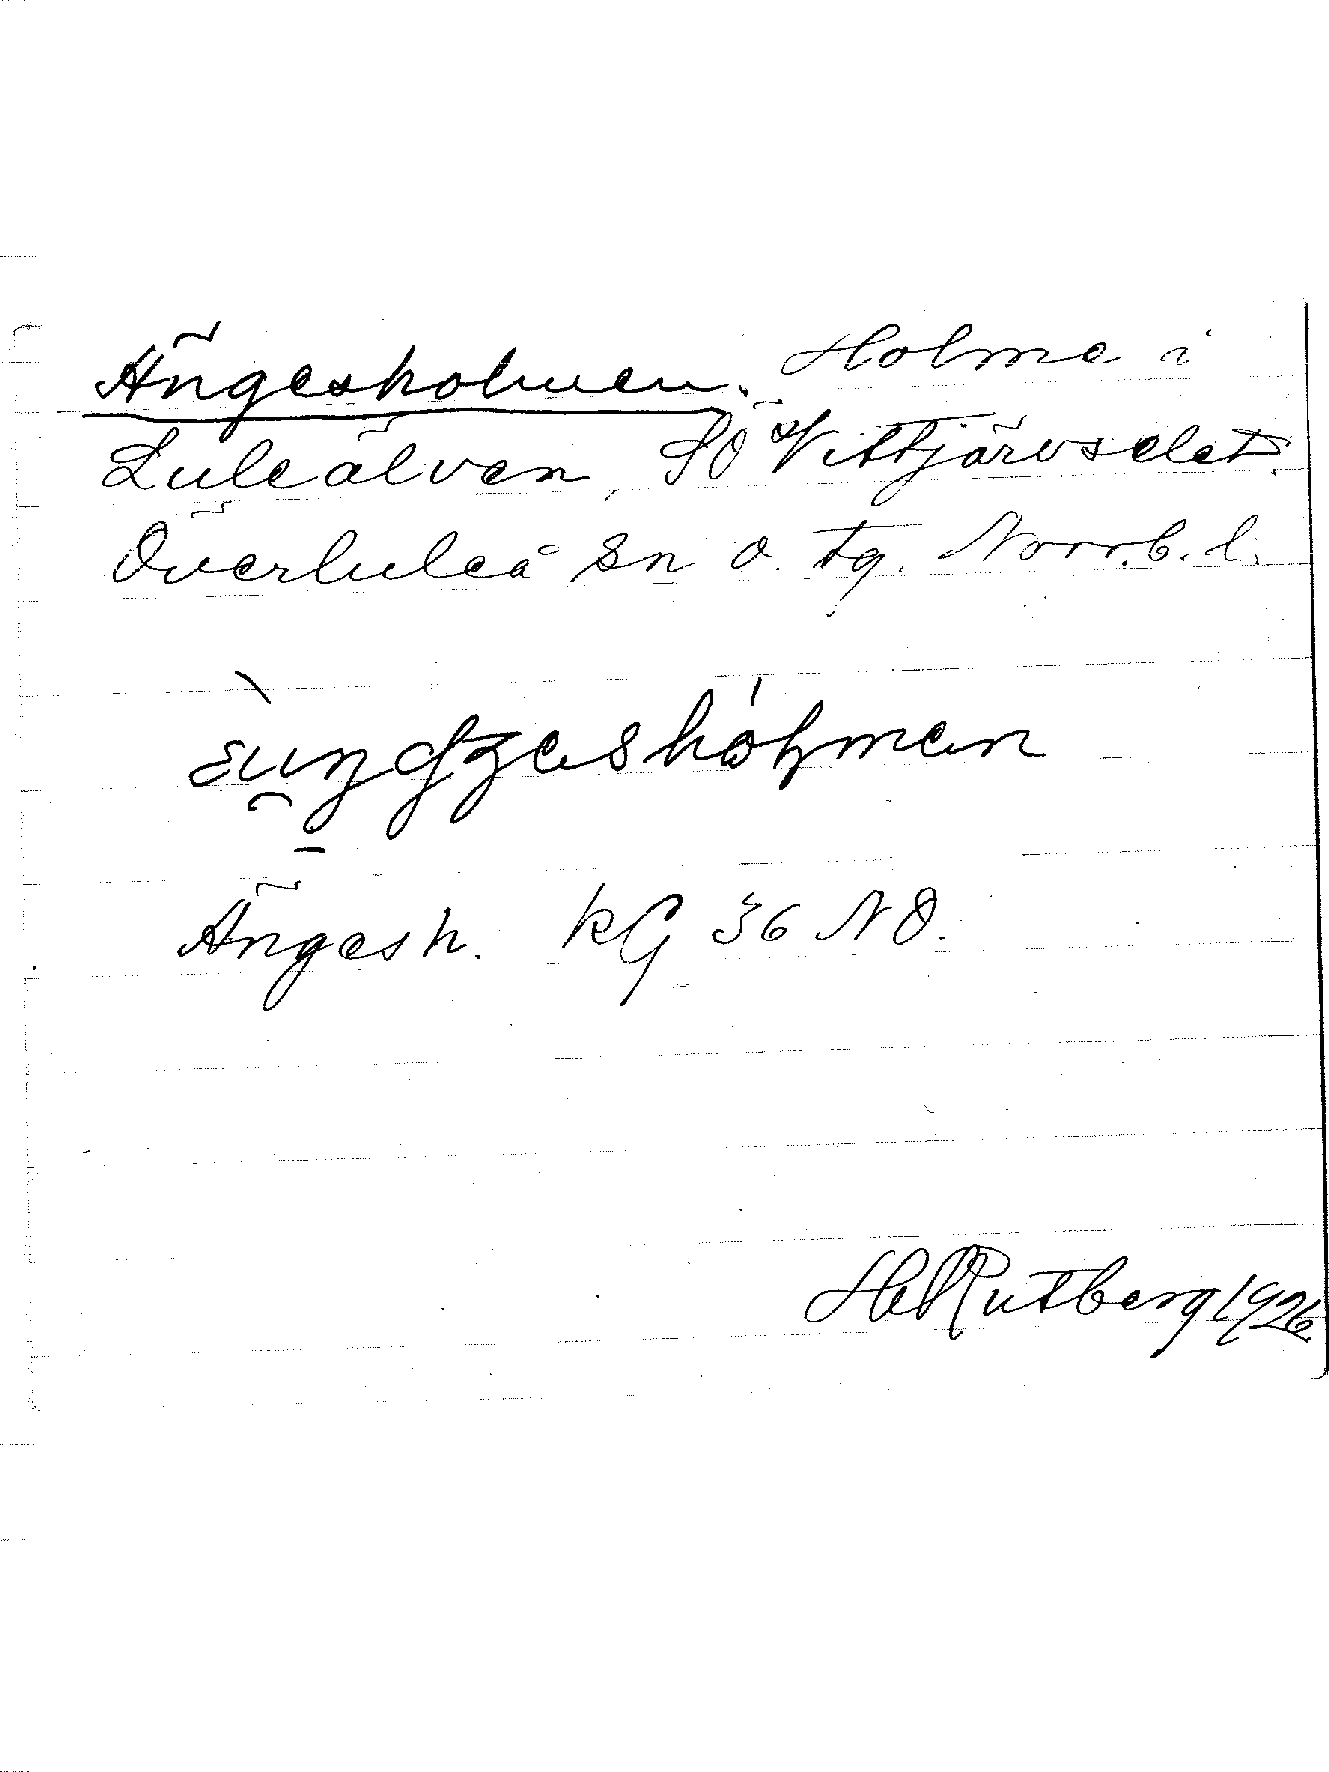 Ängesholmen. Holme i
Luleälven, SÖ Vittjärvselet.
Överluleå sn o. tg. Norrb. l.
Ängesh. KG 36 NO.
H Rutberg 1926